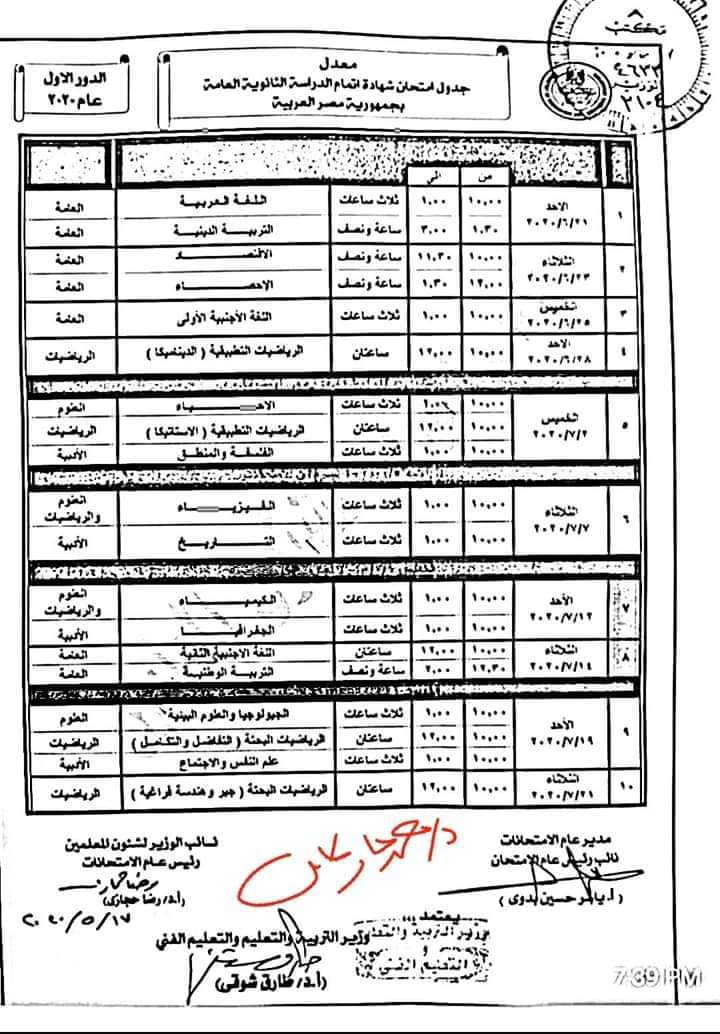 معدل
جدول امتحان شهادة اتمام الدراسة الثانوية العامة
بجمهورية مصر العربية
الدور الاول
عام ٢٠٢٠
٤٦٣٣
٢١٠٤
من الى
١ الاحد ٢٠٢٠/٦/٢١ ١٠,٠٠ ١,٠٠ ثلاث ساعات اللغة العربية العامة
١,٣٠ ٣,٠٠ ساعة ونصف التربية الدينية العامة
٢ الثلاثاء ٢٠٢٠/٦/٢٣ ١٠,٠٠ ١١,٣٠ ساعة ونصف الاقتصاد العامة
١٢,٠٠ ١,٣٠ ساعة ونصف الاحصاء العامة
٣ الخميس ٢٠٢٠/٦/٢٥ ١٠,٠٠ ١,٠٠ ثلاث ساعات اللغة الأجنبية الأولى العامة
٤ الاحد ٢٠٢٠/٦/٢٨ ١٠,٠٠ ١٢,٠٠ ساعتان الرياضيات التطبيقية ( الديناميكا ) الرياضيات
٥ الخميس ٢٠٢٠/٧/٢ ١٠,٠٠ ١,٠٠ ثلاث ساعات الاحياء العلوم
١٠,٠٠ ١٢,٠٠ ساعتان الرياضيات التطبيقية ( الاستاتيكا ) الرياضيات
١٠,٠٠ ١,٠٠ ثلاث ساعات الفلسفة والمنطق الأدبية
٦ الثلاثاء ٢٠٢٠/٧/٧ ١٠,٠٠ ١,٠٠ ثلاث ساعات الفيزياء العلوم والرياضيات
١٠,٠٠ ١,٠٠ ثلاث ساعات التاريخ الأدبية
٧ الأحد ٢٠٢٠/٧/١٢ ١٠,٠٠ ١,٠٠ ثلاث ساعات الكيمياء العلوم والرياضيات
١٠,٠٠ ١,٠٠ ثلاث ساعات الجغرافيا الأدبية
٨ الثلاثاء ٢٠٢٠/٧/١٤ ١٠,٠٠ ١٢,٠٠ ساعتان اللغة الاجنبية الثانية العامة
١٢,٣٠ ٢,٠٠ ساعة ونصف التربية الوطنية العامة
٩ الأحد ٢٠٢٠/٧/١٩ ١٠,٠٠ ١,٠٠ ثلاث ساعات الجيولوجيا والعلوم البيئية العلوم
١٠,٠٠ ١٢,٠٠ ساعتان الرياضيات البحتة ( التفاضل والتكامل ) الرياضيات
١٠,٠٠ ١,٠٠ ثلاث ساعات علم النفس والاجتماع الأدبية
١٠ الثلاثاء ٢٠٢٠/٧/٢١ ١٠,٠٠ ١٢,٠٠ ساعتان الرياضيات البحتة ( جبر وهندسة فراغية ) الرياضيات
مدير عام الامتحانات
نائب رئيس عام الامتحان
( أ.ياسر حسين بدوى )
نائب الوزير لشئون المعلمين
رئيس عام الامتحانات
رضا حجازى
(أ.د/ رضا حجازى)
٢٠٢٠/٥/١٧
يعتمد ,,,
وزير التربية والتعليم والتعليم الفني
(أ.د/ طارق شوقي)
وزير التربية والتعليم
و
التعليم الفني
7:39 PM